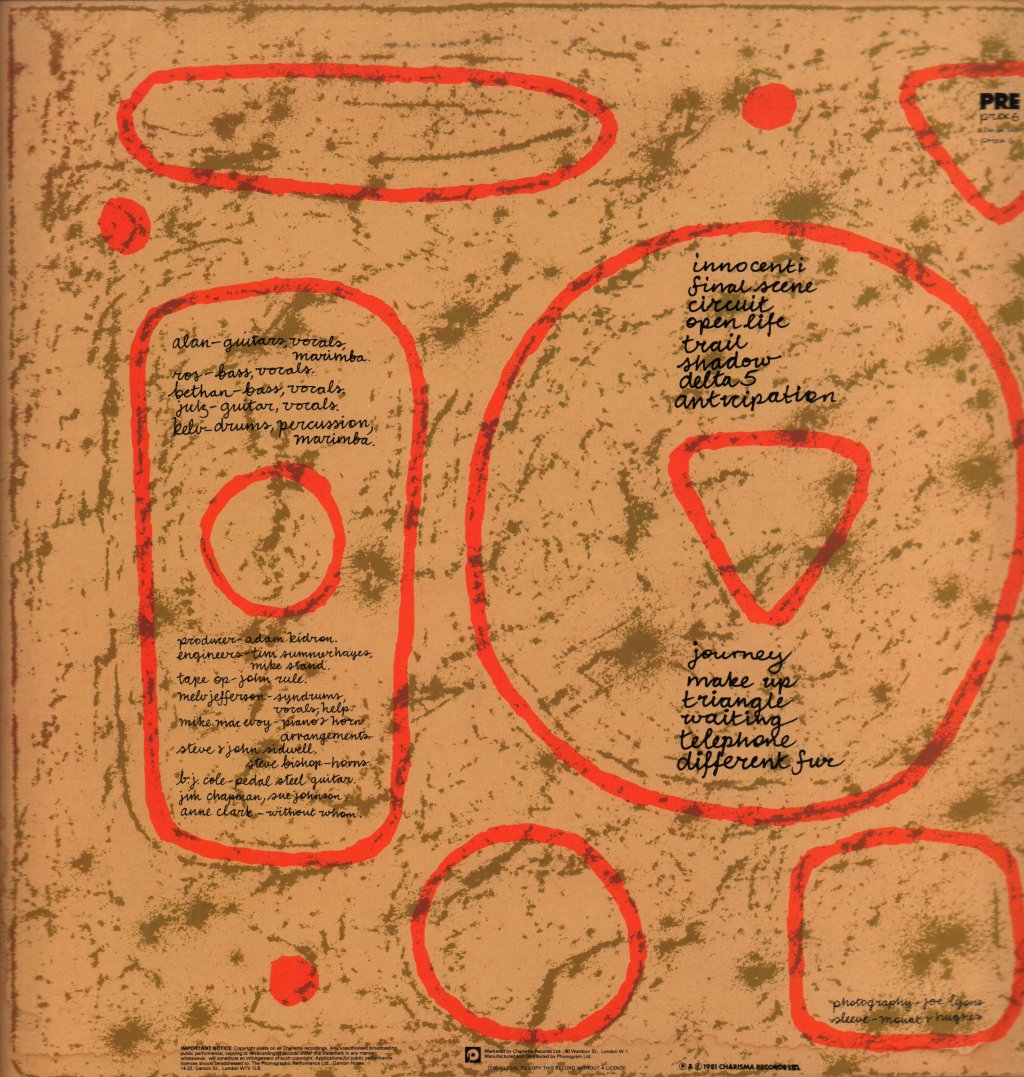 PRE
prex 6
innocenti
final scene
circuit
open life
trail
shadow
delta 5
anticipation
alan-guitars, vocals,
marimba.
ros-bass, vocals.
bethan-bass, vocals.
julz-guitar, vocals.
kelv-drums, percussion,
marimba.
producer-adam kidron.
engineers-tim summerhayes,
mike stand.
tape op-john rule.
melv jefferson-syndrums,
vocals, help.
mike mac evoy-piano & horn
arrangements.
steve & john sidwell,
steve bishop-horns.
b.j. cole-pedal steel guitar.
jim chapman, sue johnson,
anne clark-without whom.
journey
make up
triangle
waiting
telephone
different fur
photography-joe lyons
sleeve-mouat & hughes
IMPORTANT NOTICE: Copyright exists on all Charisma recordings. Any unauthorised broadcasting
public performance, copying or re-recording of records under this trademark in any manner
whatsoever, will constitute an infringement of such copyright. Applications for public performance
licences should be addressed to: The Phonographic Performance Ltd., Ganton House,
14-22, Ganton St., London W1V 1LB.
Marketed by Charisma Records Ltd., 90 Wardour St., London W.1.
Manufactured and Distributed by Phonogram Ltd.
IT IS ILLEGAL TO COPY THIS RECORD WITHOUT A LICENCE
℗ & © 1981 CHARISMA RECORDS LTD.